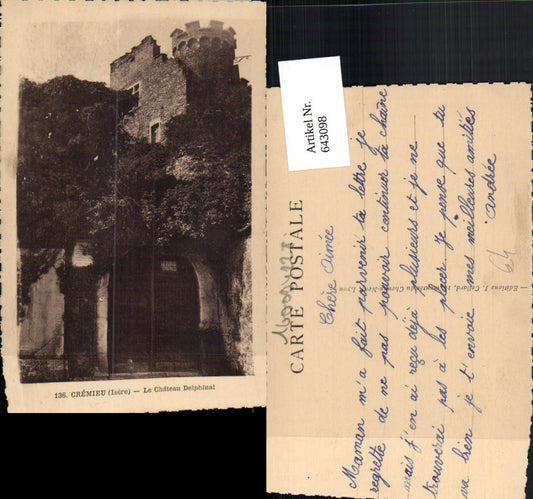 136. CRÉMIEU (Isère) — Le Château Delphinal
Artikel Nr.
643098
CARTE POSTALE
Chère Aimée
Maman m'a fait parvenir ta lettre je
regrette de ne pas pouvoir continuer ta chaîne
mais j'en ai reçu déjà plusieurs et je ne
trouverai pas à les placer. Je pense que tu
va bien je t'envoie mes meilleures amitiés
Andrée
— Editions J. Cellard, Lyon
64